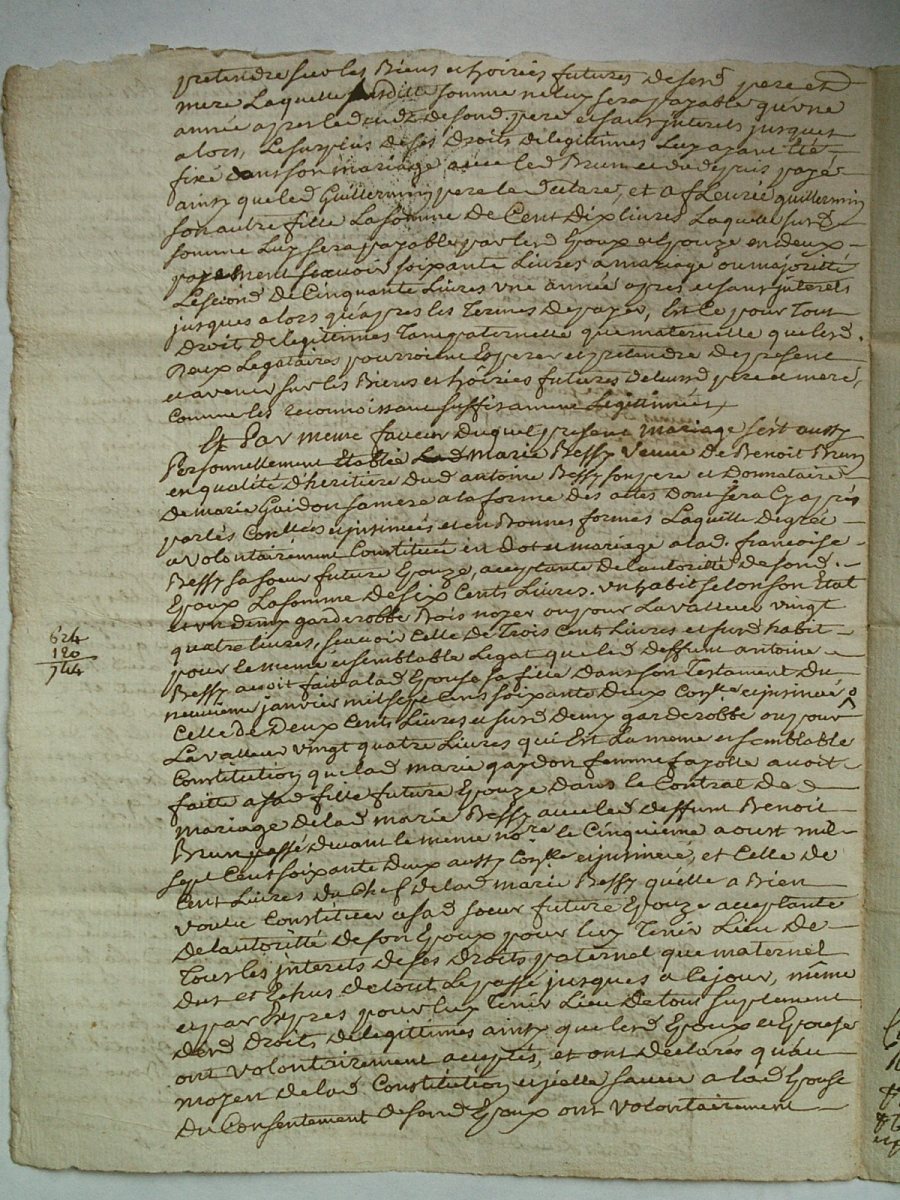 pretendre sur les Biens et hoiries futures de sesd. pere et
mere Laquelle susditte somme ne luy sera payable qu'une
année apres le deces de sond. pere et sans interets jusques
alors, Le surplus de ses Droits de legittimes Luy ayant été
fixé dans son mariage avec led Brun et du depuis payé
ainsy que led Guillermin pere le declare, et a fleurie guillermin
son autre fille La somme de Cent Dix livres Laquelle susd
somme Luy sera payable par lesd Epoux et Epouze en deux
payement scavoir soixante Livres a mariage ou majoritté
Le second de Cinquante Livres une année apres et sans interets
jusques alors qu'apres les Termes de payer, Et le pour Tout
Droit de legittimes Tant paternelle que maternelle que lesd.
Deux Legataires pourroient Esperer et pretendre de present
et avenir sur les Biens et hoiries futures de leursd pere et mere,
Comme les reconnoissant suffisament Legittimées
Et Par meme faveur duquel present mariage s'est aussy
Personnellement Etablie Lad Marie Bessy veuve de Benoit Brun
en qualité d'heritiere dud antoine Bessy son pere et Donnataire
de marie Gaidon sa mere a la forme des actes Dont sera Cy apres
parlés Conllés et insinués et en Bonnes formes Laquelle de gré
a volontairement Constitué en dot et mariage a lad. francoise
Bessy sa soeur future Epouze, acceptante de l'autoritté de sond.
Epoux La somme de Six Cents Livres. un habit selon son Etat
et un demy garderobbe Bois noyer ou pour La valleur vingt
quatre livres, scavoir Celle de Trois Cent Livres et susd habit
pour le meme et semblable Legat que led deffunt antoine
Bessy avoit fait a lad Epouse sa fille dans son Testament du
neuvieme janvier mil sept Cens soixante deux Conlle et insinué
Celle de Deux Cents Livres et susd Demy garderobbe ou pour
La valleur vingt quatre Livres qui Est La meme et semblable
Constitution que lad marie gaydon femme fayolle avoit
faitte a sad fille future Epouze dans le Contrat de
mariage de lad marie Bessy avec led deffunt Benoit
Brun passé devant le meme nore le Cinquieme aoust mil
sept Cent soixante deux aussy Conlle et insinué, et Celle de
Cent Livres du Chef de lad marie Bessy qu'elle a Bien
voulu Constituer a sad soeur future Epouze acceptante
De l'autoritté de son Epoux pour luy Tenir Lieu de
Tous les interets de ses Droits paternel que maternel
Dus et Echus de tout Le passé jusques a ce jour, même
et par Expres pour luy Tenir Lieu de tous suplement
desd Droits de legittimes ainsy que lesd Epoux et Epouse
ont volontairement acceptés, et ont declarés qu'au
moyen de lad Constitution et icelle faveur a lad Epouse
du Consentement de sond Epoux ont volontairement
624
120
744